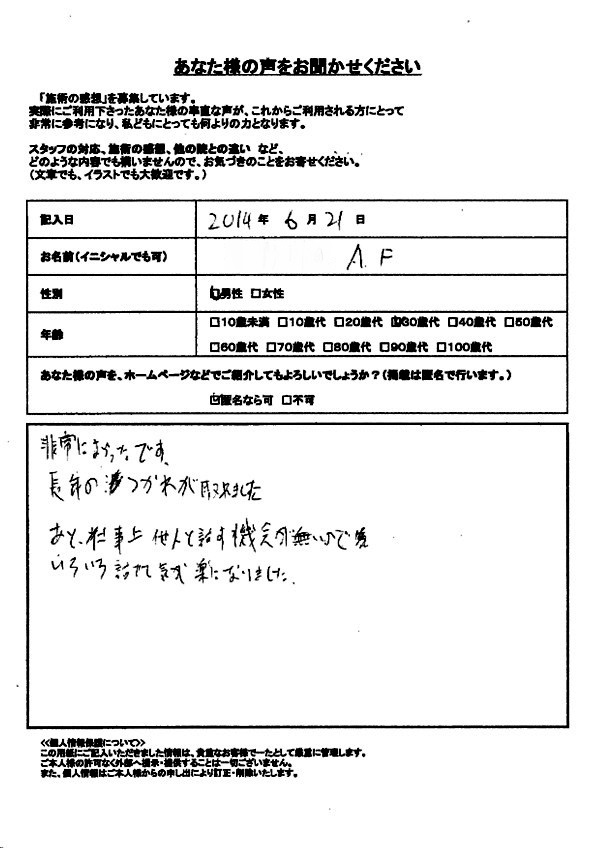 あなた様の声をお聞かせください
「施術の感想」を募集しています。
実際にご利用下さったあなた様の率直な声が、これからご利用される方にとって
非常に参考になり、私どもにとっても何よりの力となります。
スタッフの対応、施術の感想、他の院との違い など、
どのような内容でも構いませんので、お気づきのことをお寄せください。
(文章でも、イラストでも大歓迎です。)
記入日 2014年 6月 21日
お名前(イニシャルでも可) A.F
性別 ☑男性 □女性
年齢 □10歳未満 □10歳代 □20歳代 ☑30歳代 □40歳代 □50歳代
□60歳代 □70歳代 □80歳代 □90歳代 □100歳代
あなた様の声を、ホームページなどでご紹介してもよろしいでしょうか?(掲載は匿名で行います。)
☑匿名なら可 □不可
非常によかったです。
長年の つかれが取れました
あと、仕事上 他人と話す機会が無いので
いろいろ話せて気が楽になりました。
<<個人情報保護について>>
この用紙にご記入いただきました情報は、貴重なお客様データとして厳重に管理します。
ご本人様の許可なく外部へ提示・提供することは一切ございません。
また、個人情報はご本人様からの申し出により訂正・削除いたします。